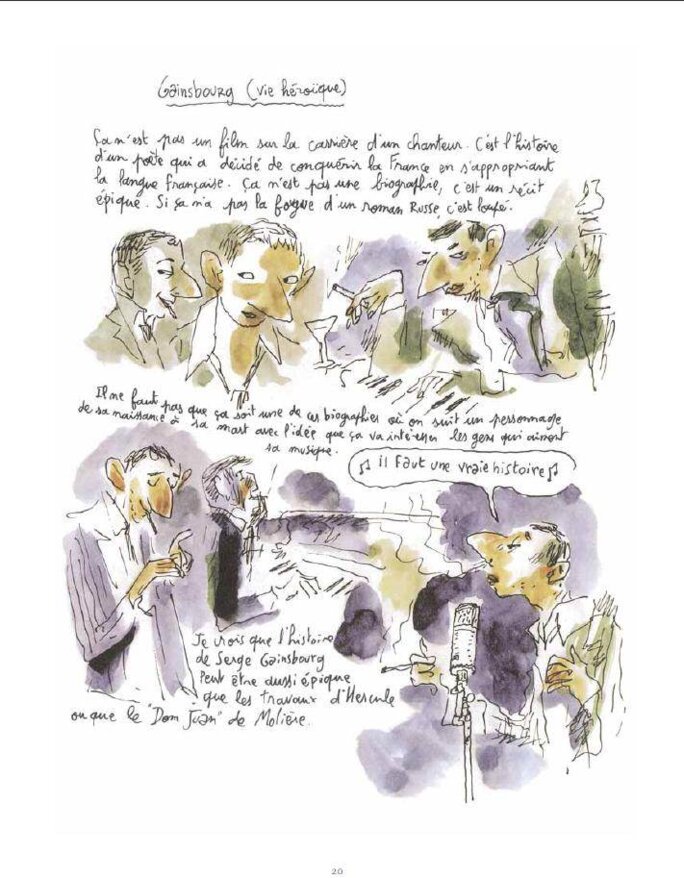 Gainsbourg (vie héroïque)
Ça n'est pas un film sur la carrière d'un chanteur. C'est l'histoire
d'un poète qui a décidé de conquérir la France en s'appropriant
la langue française. Ça n'est pas une biographie, c'est un récit
épique. Si ça n'a pas la fougue d'un roman Russe, c'est loupé.
Il ne faut pas que ça soit une de ces biographies où on suit un personnage
de sa naissance à sa mort avec l'idée que ça va intéresser les gens qui aiment
sa musique.
♫ il faut une vraie histoire ♫
Je crois que l'histoire
de Serge Gainsbourg
Peut être aussi épique
que les travaux d'Hercule
ou que le "Dom Juan" de Molière.
20